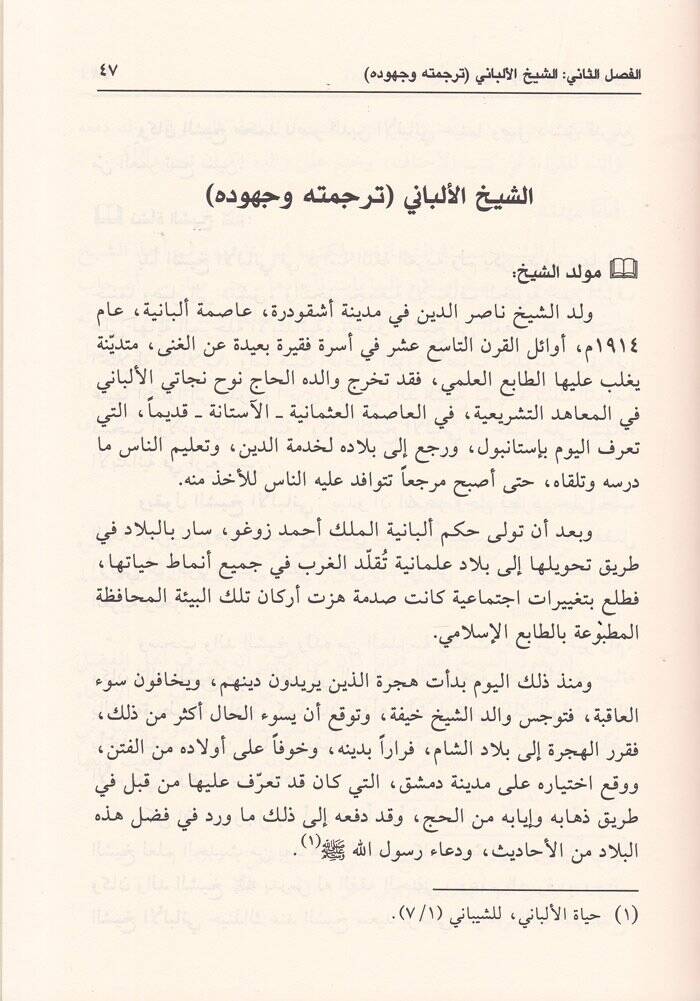 الفصل الثاني: الشيخ الألباني (ترجمته وجهوده) ٤٧
الشيخ الألباني (ترجمته وجهوده)
مولد الشيخ:
ولد الشيخ ناصر الدين في مدينة أشقودرة، عاصمة ألبانية، عام
١٩١٤م، أوائل القرن التاسع عشر في أسرة فقيرة بعيدة عن الغنى، متديّنة
يغلب عليها الطابع العلمي، فقد تخرج والده الحاج نوح نجاتي الألباني
في المعاهد التشريعية، في العاصمة العثمانية ـ الآستانة ـ قديماً، التي
تعرف اليوم بإستانبول، ورجع إلى بلاده لخدمة الدين، وتعليم الناس ما
درسه وتلقاه، حتى أصبح مرجعاً تتوافد عليه الناس للأخذ منه.
وبعد أن تولى حكم ألبانية الملك أحمد زوغو، سار بالبلاد في
طريق تحويلها إلى بلاد علمانية تُقلّد الغرب في جميع أنماط حياتها،
فطلع بتغييرات اجتماعية كانت صدمة هزت أركان تلك البيئة المحافظة
المطبوعة بالطابع الإسلامي.
ومنذ ذلك اليوم بدأت هجرة الذين يريدون دينهم، ويخافون سوء
العاقبة، فتوجس والد الشيخ خيفة، وتوقع أن يسوء الحال أكثر من ذلك،
فقرر الهجرة إلى بلاد الشام، فراراً بدينه، وخوفاً على أولاده من الفتن،
ووقع اختياره على مدينة دمشق، التي كان قد تعرّف عليها من قبل في
طريق ذهابه وإيابه من الحج، وقد دفعه إلى ذلك ما ورد في فضل هذه
البلاد من الأحاديث، ودعاء رسول الله ﷺ(١).
(١) حياة الألباني، للشيباني (٧/١).